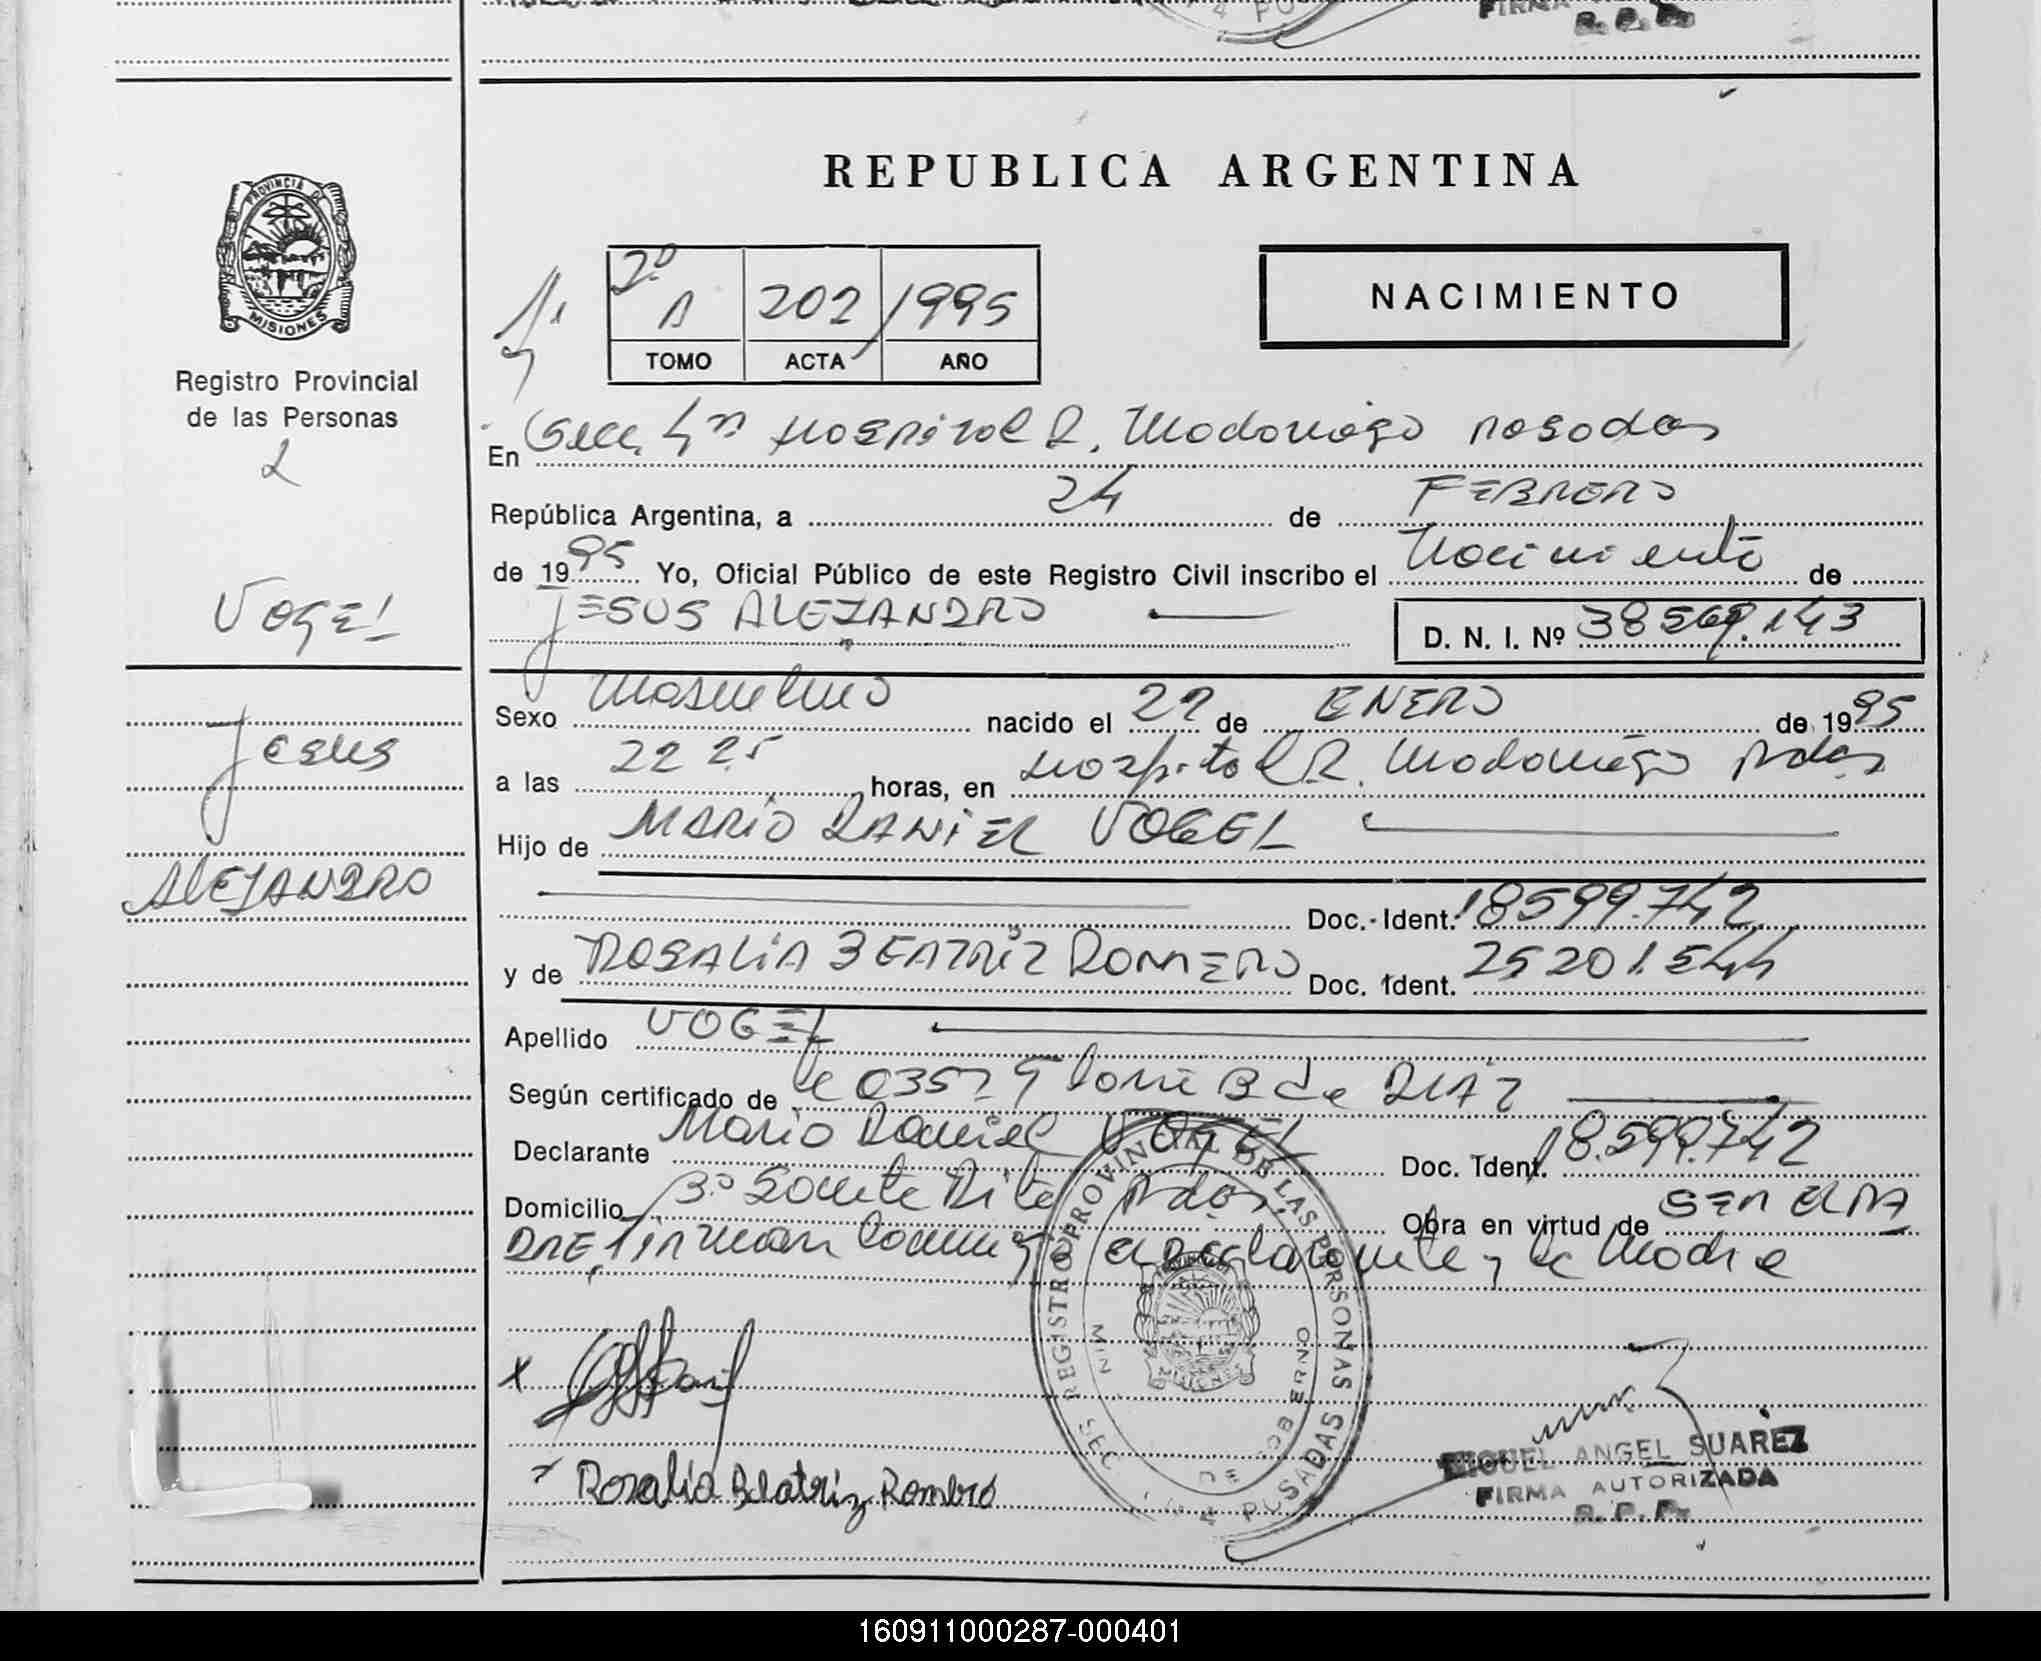 PROVINCIA D
MISIONES
Registro Provincial
de las Personas
2
VOGEL
Jesus
ALEJANDRO
REPUBLICA ARGENTINA
2º A 202 1995
TOMO ACTA AÑO
NACIMIENTO
En Secc 4ta Hospital R. Madariaga Posadas
República Argentina, a 24 de FEBRERO
de 1995 Yo, Oficial Público de este Registro Civil inscribo el Nacimiento de
JESUS ALEJANDRO D. N. I. Nº 38569.143
Sexo Masculino nacido el 22 de ENERO de 1995
a las 22 25 horas, en Hospital R. Madariaga Pdas
Hijo de MARIO DANIEL VOGEL
Doc. Ident. 18599.742
y de ROSALIA BEATRIZ ROMERO Doc. Ident. 25201.544
Apellido VOGEL
Según certificado de DIAZ
Declarante Mario Daniel VOGEL Doc. Ident. 18.599.742
Domicilio Bº Santa Rita Pdas. Obra en virtud de SER EL PA
DRE, Firman Conmigo el declarante y la Madre
REGISTRO PROVINCIAL DE LAS PERSONAS
MIN DE GOBIERNO
SEC 4ta POSADAS
MISIONES
x
x Rosalia Beatriz Romero
MIGUEL ANGEL SUAREZ
FIRMA AUTORIZADA
R. P. P.
160911000287-000401